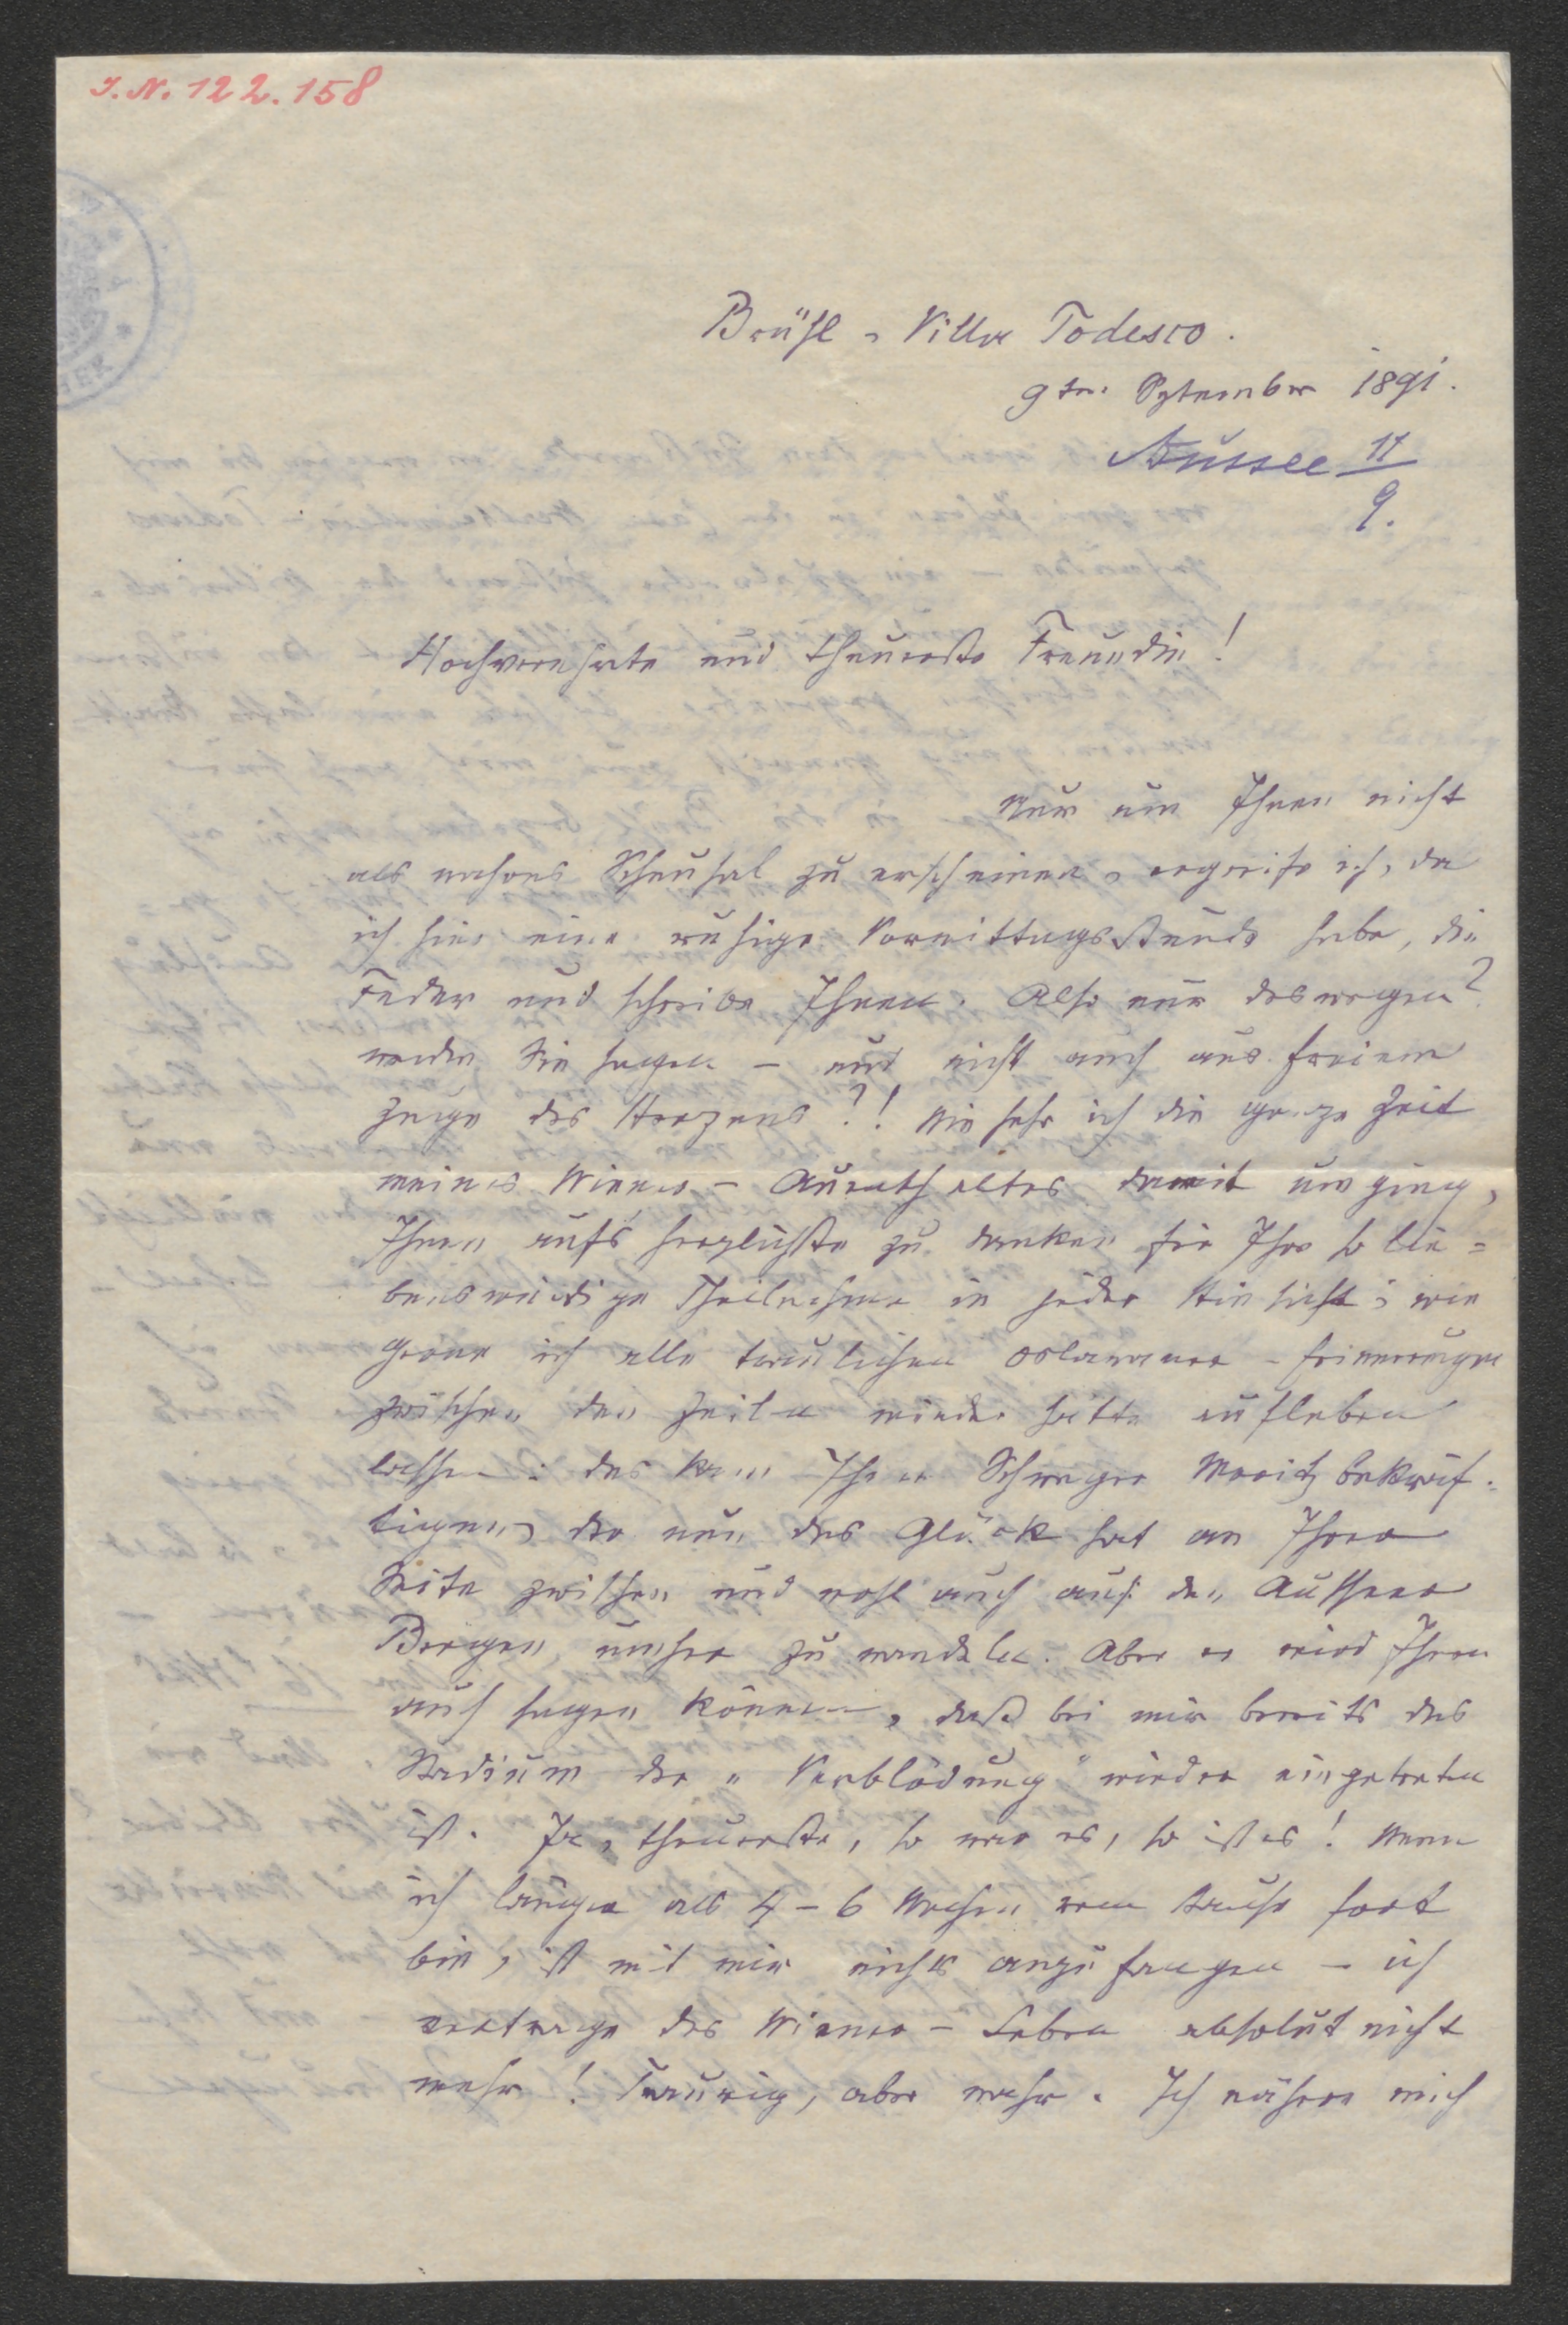 I. N. 122.158
Brühl, Villa Todesco.
9ten September 1891.
Aussee 11/9.
Hochverehrte und theuerste Freundin!
Nur um Ihnen nicht
als wahres Scheusal zu erscheinen, ergreife ich, da
ich hier eine ruhige Vormittagsstunde habe, die
Feder und schreibe Ihnen. Also nur deswegen?
werden Sie sagen – und nicht auch aus freiem
Zuge des Herzens?! Wie sehr ich die ganze Zeit
meines Wiener-Aufenthaltes damit umging,
Ihnen aufs herzlichste zu danken für Ihre so lie=
benswürdige Theilnahme in jeder Hinsicht; wie
gerne ich alle traulichen Oslawaner-Erinnerungen
zwischen den Zeilen wieder hätte aufleben
lassen: das kann Ihnen Schwager Moritz bekräf=
tigen, der nun das Glück hat an Ihrer
Seite zwischen und wohl auch auf den Ausseer
Bergen umher zu wandeln. Aber er wird Ihnen
auch sagen können, daß bei mir bereits das
Stadium der „Verblödung" wieder eingetreten
ist. Ja, theuerste, so war es, so ist es! Wenn
ich länger als 4–6 Wochen vom Hause fort
bin, ist mit mir nichts anzufangen – ich
vertrage das Wiener-Leben absolut nicht
mehr! Traurig, aber wahr. Ich nähere mich